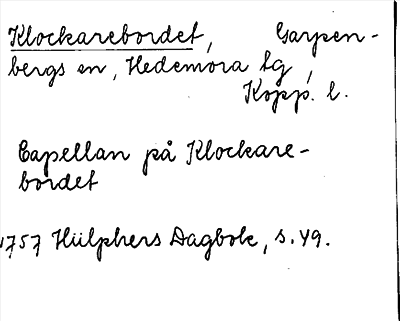 Klockarebordet, Garpen-
bergs sn, Hedemora tg,
Kopp. l.
Capellan på Klockare-
bordet
1757 Hülphers Dagbok, s. 49.